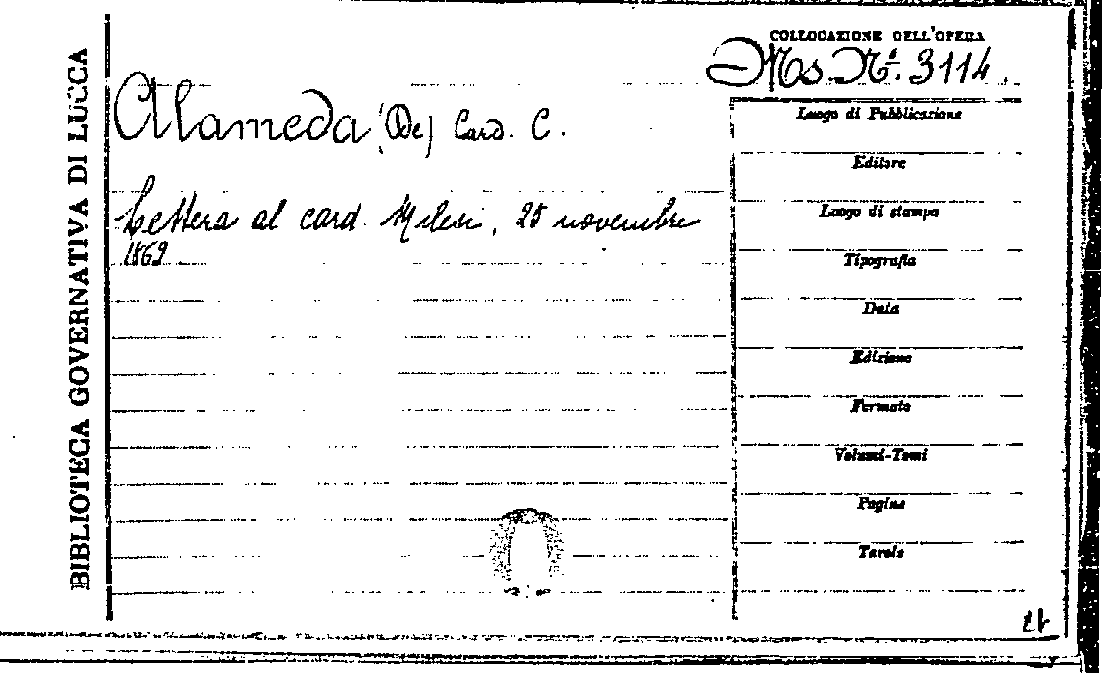 BIBLIOTECA GOVERNATIVA DI LUCCA
COLLOCAZIONE DELL'OPERA
Ms. Nº. 3114.
Alameda (De) Card. C.
Lettera al card. Milesi, 25 novembre
1869
Luogo di Pubblicazione
Editore
Luogo di stampa
Tipografia
Data
Edizione
Formato
Volumi-Tomi
Pagine
Tavole